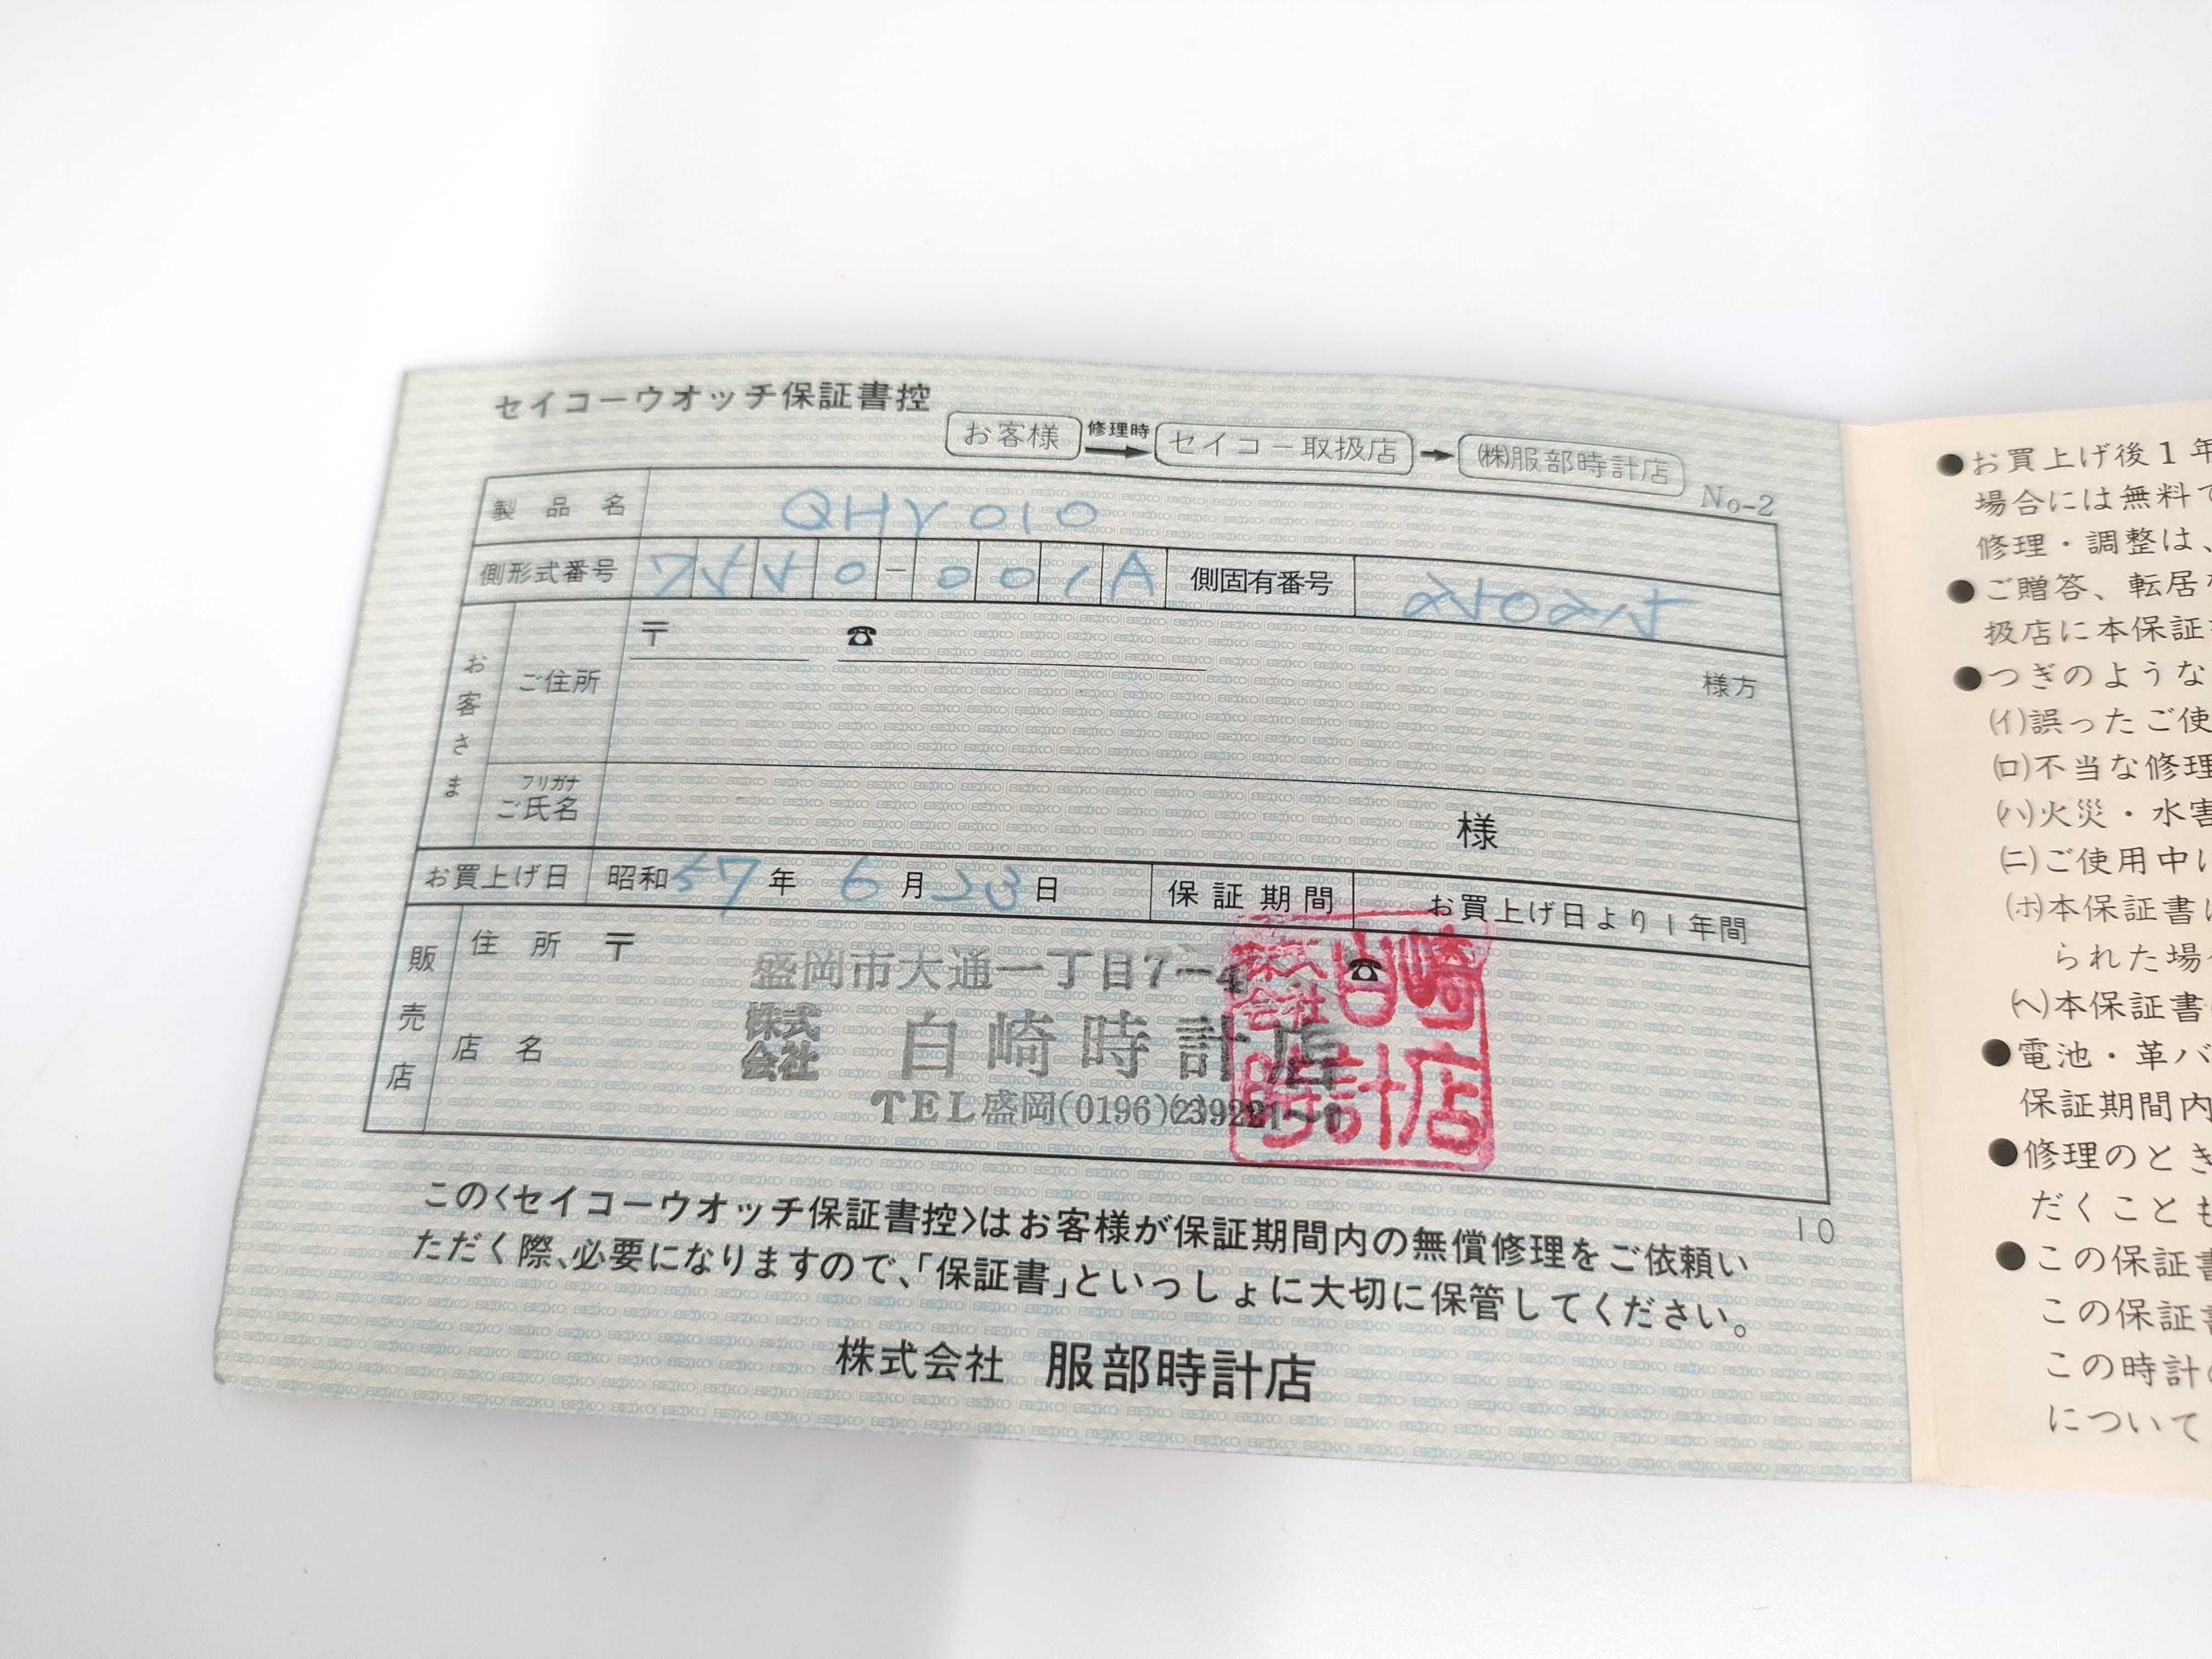 セイコーウオッチ保証書控
お客様 修理時 セイコー取扱店 ㈱服部時計店
No-2
製品名 QHY010
側形式番号 7550-001A 側固有番号 250215
お客さま
ご住所 〒 ☎
様方
フリガナ
ご氏名 様
お買上げ日 昭和57年 6月23日 保証期間 お買上げ日より1年間
販売店
住所 〒 盛岡市大通一丁目7-4 ☎
店名 株式会社 白崎時計店
TEL盛岡(0196)
株式会社白崎時計店
10
この<セイコーウオッチ保証書控>はお客様が保証期間内の無償修理をご依頼い
ただく際、必要になりますので、「保証書」といっしょに大切に保管してください。
株式会社 服部時計店
●お買上げ後1年
場合には無料で
修理・調整は、
●ご贈答、転居
扱店に本保証
●つぎのような
(イ)誤ったご使
(ロ)不当な修理
(ハ)火災・水害
(ニ)ご使用中に
(ホ)本保証書に
られた場
(ヘ)本保証書
●電池・革バ
保証期間内
●修理のとき
だくことも
●この保証書
この保証書
この時計の
について